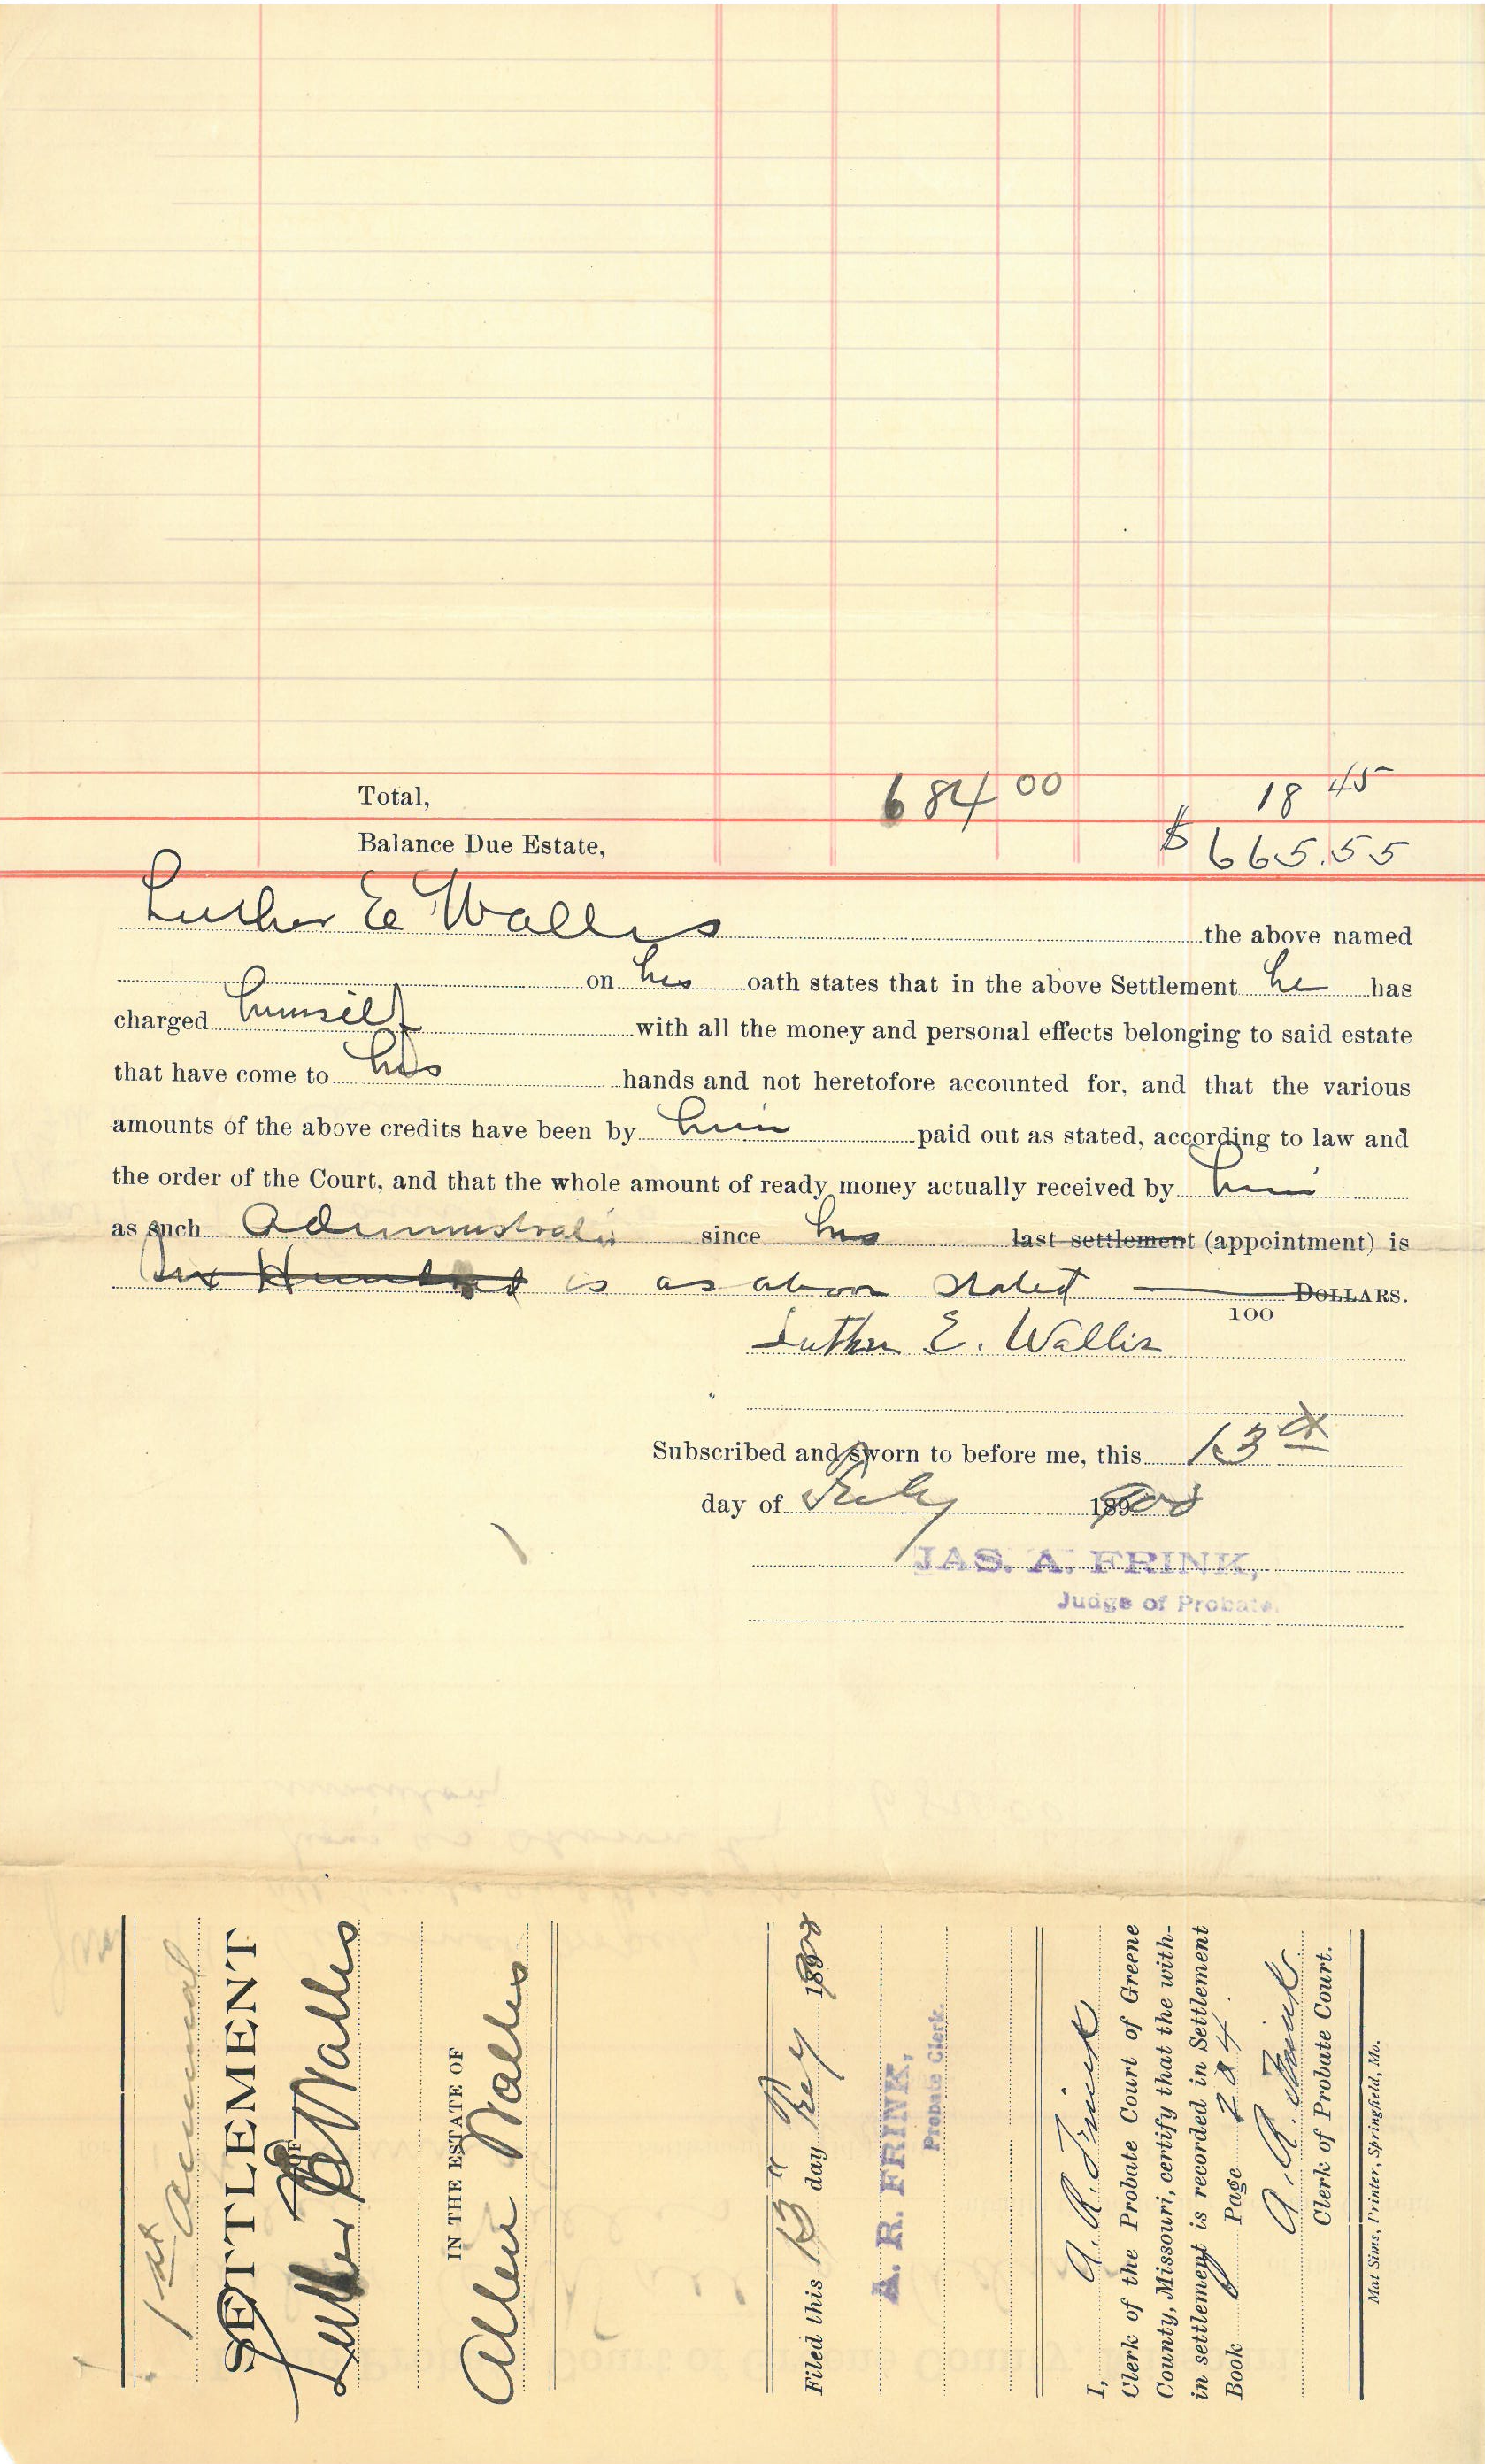 Total, 684 00 18 45
Balance Due Estate, $665.55
Luther E Wallis the above named
on his oath states that in the above Settlement he has
charged himself with all the money and personal effects belonging to said estate
that have come to his hands and not heretofore accounted for, and that the various
amounts of the above credits have been by him paid out as stated, according to law and
the order of the Court, and that the whole amount of ready money actually received by him
as such Administrator since his last settlement (appointment) is
Six Hundred is as above stated DOLLARS.
100
Luther E. Wallis
Subscribed and sworn to before me, this 13th
day of July 189
JAS. A. FRINK,
Judge of Probate.
1st Annual
SETTLEMENT
OF
Luther E Wallis
IN THE ESTATE OF
Allen Wallis
Filed this 13" day 189
A. R. FRINK,
Probate Clerk.
I, A. R. Frink
Clerk of the Probate Court of Greene
County, Missouri, certify that the with-
in settlement is recorded in Settlement
Book Page 284.
A. R. Frink
Clerk of Probate Court.
Mat Sims, Printer, Springfield, Mo.